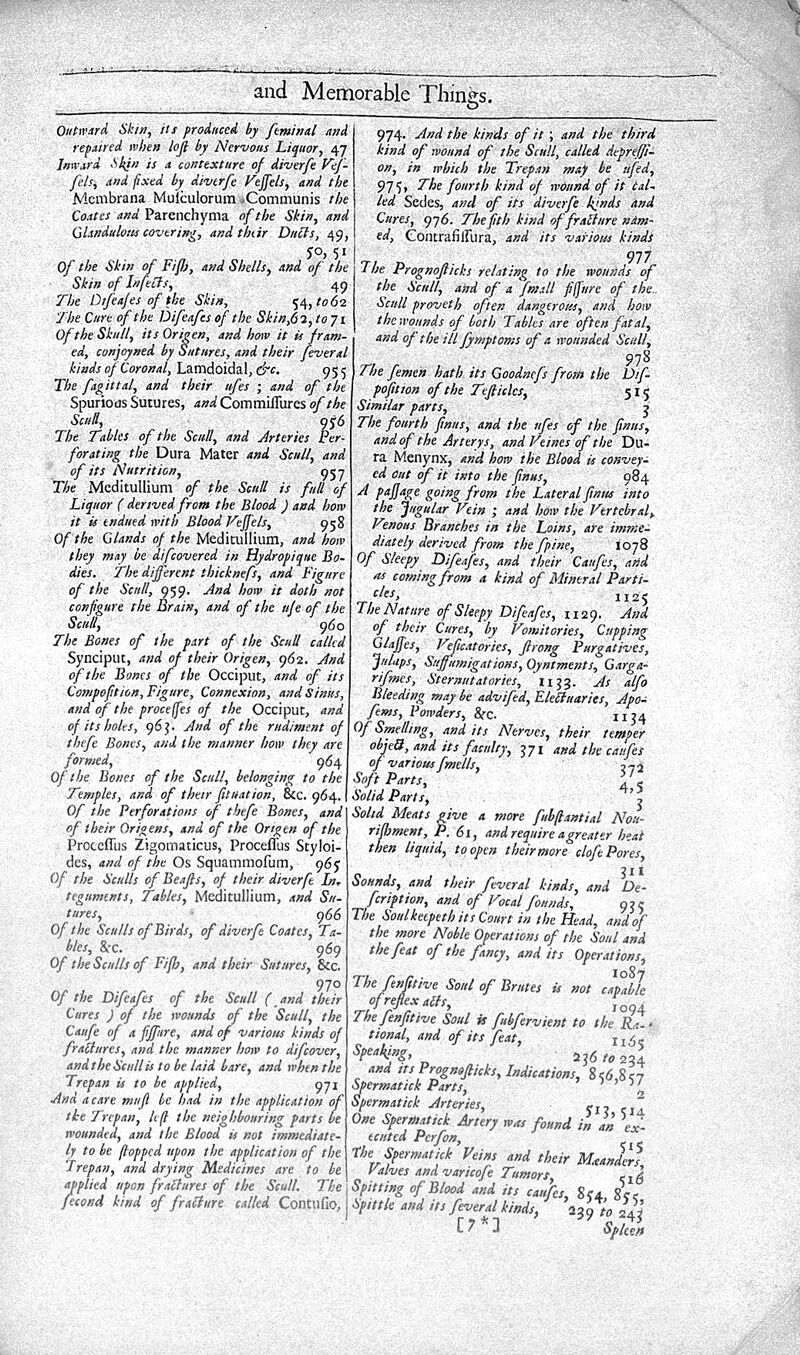 and Memorable Things.
Outward Skin, its produced by ſeminal and
repaired when loſt by Nervous Liquor, 47
Inward Skin is a contexture of diverſe Veſ-
ſels, and fixed by diverſe Veſſels, and the
Membrana Muſculorum Communis the
Coates and Parenchyma of the Skin, and
Glandulous covering, and their Ducts, 49,
50, 51
Of the Skin of Fiſh, and Shells, and of the
Skin of Inſects, 49
The Diſeaſes of the Skin, 54, to 62
The Cure of the Diſeaſes of the Skin, 62, to 71
Of the Skull, its Origen, and how it is fram-
ed, conjoyned by Sutures, and their ſeveral
kinds of Coronal, Lamdoidal, &c. 955
The ſagittal, and their uſes ; and of the
Spurious Sutures, and Commiſſures of the
Scull, 956
The Tables of the Scull, and Arteries Per-
forating the Dura Mater and Scull, and
of its Nutrition, 957
The Meditullium of the Scull is full of
Liquor ( derived from the Blood ) and how
it is endued with Blood Veſſels, 958
Of the Glands of the Meditullium, and how
they may be diſcovered in Hydropique Bo-
dies. The different thickneſs, and Figure
of the Scull, 959. And how it doth not
configure the Brain, and of the uſe of the
Scull, 960
The Bones of the part of the Scull called
Synciput, and of their Origen, 962. And
of the Bones of the Occiput, and of its
Compoſition, Figure, Connexion, and Sinus,
and of the proceſſes of the Occiput, and
of its holes, 963. And of the rudiment of
theſe Bones, and the manner how they are
formed, 964
Of the Bones of the Scull, belonging to the
Temples, and of their ſituation, &c. 964.
Of the Perforations of theſe Bones, and
of their Origens, and of the Origen of the
Proceſſus Zigomaticus, Proceſſus Styloi-
des, and of the Os Squammoſum, 965
Of the Sculls of Beaſts, of their diverſe In-
teguments, Tables, Meditullium, and Su-
tures, 966
Of the Sculls of Birds, of diverſe Coates, Ta-
bles, &c. 969
Of the Sculls of Fiſh, and their Sutures, &c.
970
Of the Diſeaſes of the Scull ( and their
Cures ) of the wounds of the Scull, the
Cauſe of a fiſſure, and of various kinds of
fractures, and the manner how to diſcover,
and the Scull is to be laid bare, and when the
Trepan is to be applied, 971
And a care muſt be had in the application of
the Trepan, leſt the neighbouring parts be
wounded, and the Blood is not immediate-
ly to be ſtopped upon the application of the
Trepan, and drying Medicines are to be
applied upon fractures of the Scull. The
ſecond kind of fracture called Contuſio,
974. And the kinds of it ; and the third
kind of wound of the Scull, called depreſſi-
on, in which the Trepan may be uſed,
975, The fourth kind of wound of it cal-
led Sedes, and of its diverſe kinds and
Cures, 976. The fith kind of fracture nam-
ed, Contrafiſſura, and its various kinds
977
The Prognoſticks relating to the wounds of
the Scull, and of a ſmall fiſſure of the
Scull proveth often dangerous, and how
the wounds of both Tables are often fatal,
and of the ill ſymptoms of a wounded Scull,
978
The ſemen hath its Goodneſs from the Diſ-
poſition of the Teſticles, 515
Similar parts, 3
The fourth ſinus, and the uſes of the ſinus,
and of the Arterys, and Veines of the Du-
ra Menynx, and how the Blood is convey-
ed out of it into the ſinus, 984
A paſſage going from the Lateral ſinus into
the Jugular Vein ; and how the Vertebral,
Venous Branches in the Loins, are imme-
diately derived from the ſpine, 1078
Of Sleepy Diſeaſes, and their Cauſes, and
as coming from a kind of Mineral Parti-
cles, 1125
The Nature of Sleepy Diſeaſes, 1129. And
of their Cures, by Vomitories, Cupping
Glaſſes, Veſicatories, ſtrong Purgatives,
Julaps, Suffumigations, Oyntments, Garga-
riſmes, Sternutatories, 1133. As alſo
Bleeding may be adviſed, Electuaries, Apo-
ſems, Powders, &c. 1134
Of Smelling, and its Nerves, their temper
object, and its faculty, 371 and the cauſes
of various ſmells, 372
Soft Parts, 4, 5
Solid Parts, 3
Solid Meats give a more ſubſtantial Nou-
riſhment, P. 61, and require a greater heat
then liquid, to open their more cloſe Pores,
311
Sounds, and their ſeveral kinds, and De-
ſcription, and of Vocal ſounds, 935
The Soul keepeth its Court in the Head, and of
the more Noble Operations of the Soul and
the ſeat of the fancy, and its Operations,
1087
The ſenſitive Soul of Brutes is not capable
of reflex acts, 1094
The ſenſitive Soul is ſubſervient to the Ra-
tional, and of its ſeat, 1165
Speaking, 236 to 234
and its Prognoſticks, Indications, 856,857
Spermatick Parts, 2
Spermatick Arteries, 513, 514
One Spermatick Artery was found in an ex-
ecuted Perſon, 515
The Spermatick Veins and their Mæanders,
Valves and varicoſe Tumors, 516
Spitting of Blood and its cauſes, 854, 855,
Spittle and its ſeveral kinds, 239 to 243
[7*]
Spleen